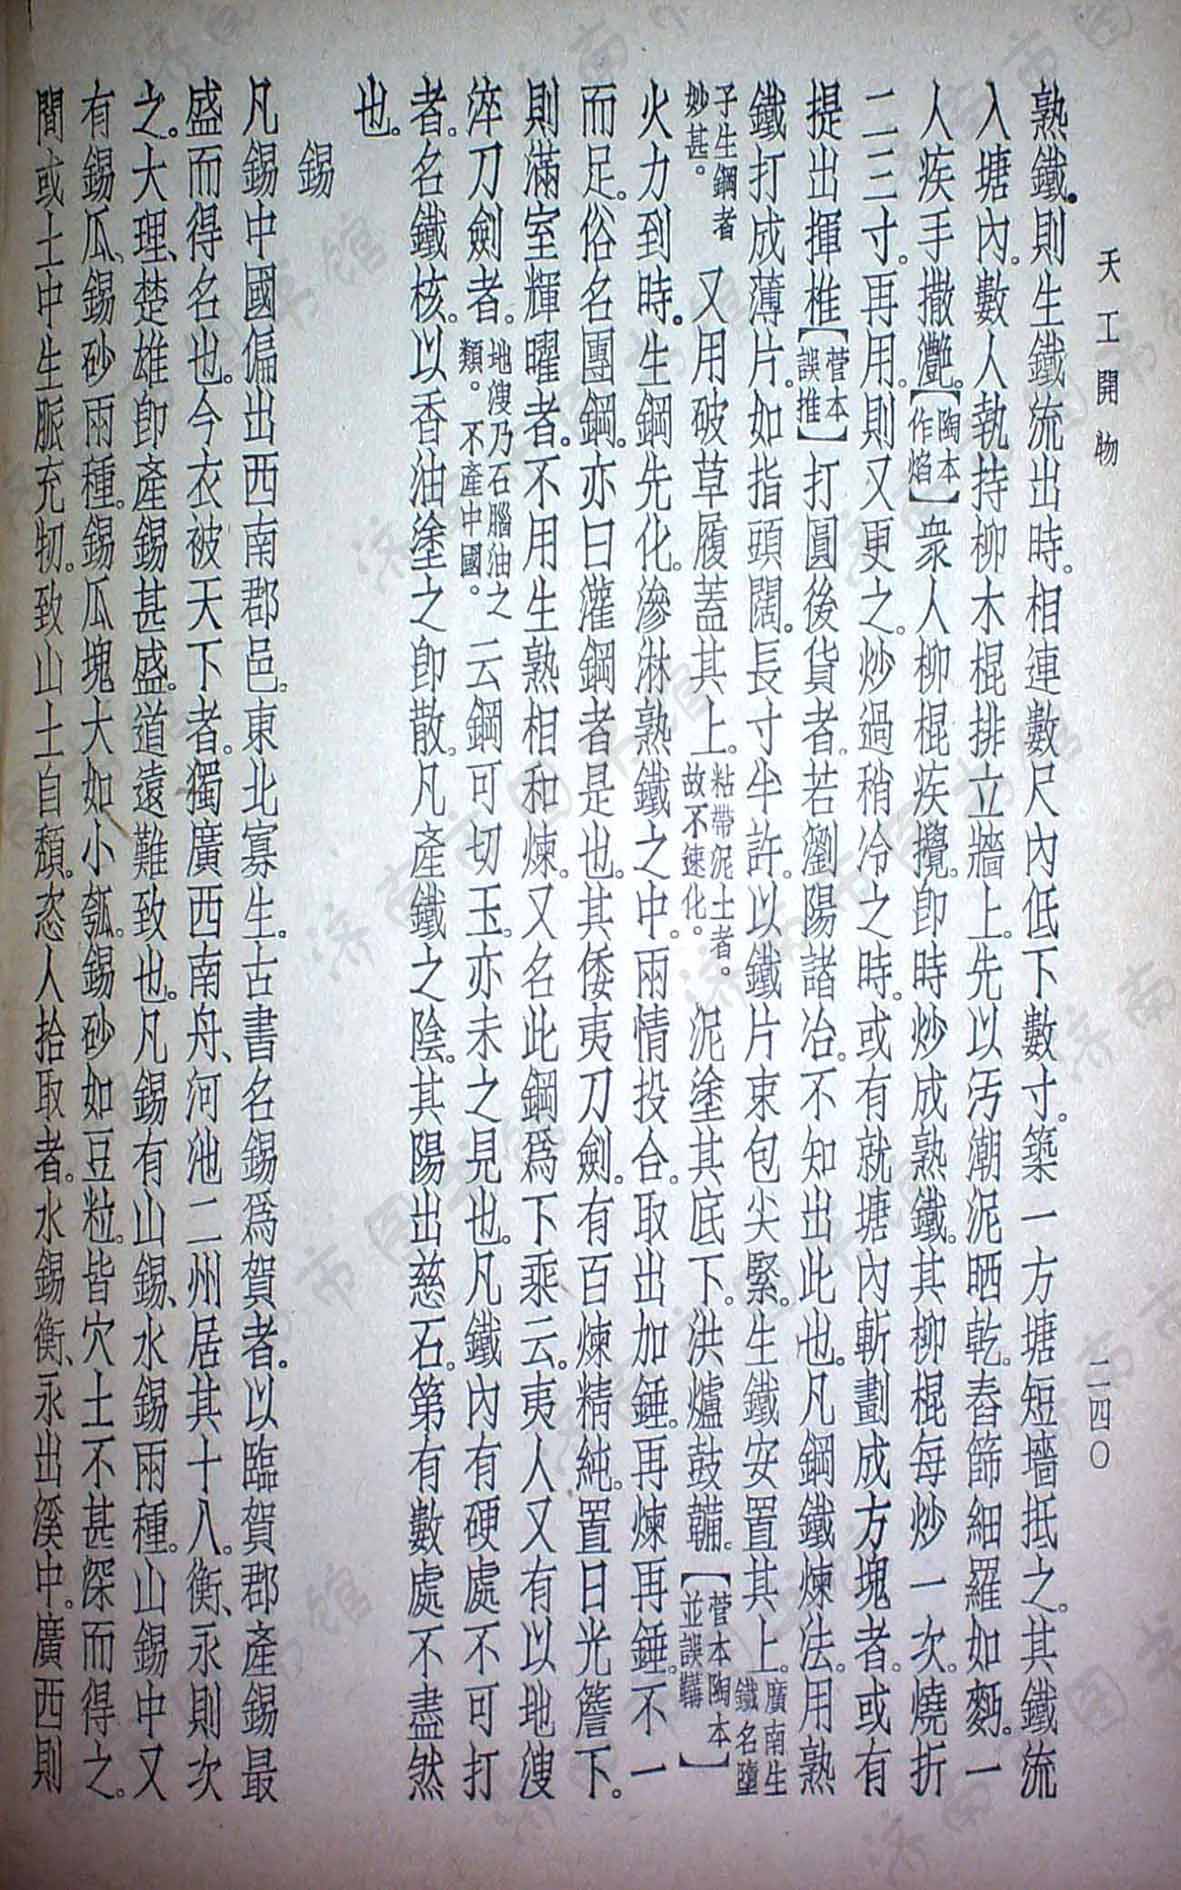 天工開物
二四〇
熟鐵。則生鐵流出時。相連數尺內低下數寸。築一方塘短墻抵之。其鐵流
入塘內。數人執持柳木棍排立牆上。先以汚潮泥晒乾。舂篩細羅如麪。一
人疾手撒灩。【陶本作焰】衆人柳棍疾攪。卽時炒成熟鐵。其柳棍每炒一次。燒折
二三寸。再用。則又更之。炒過稍冷之時。或有就塘內斬劃成方塊者。或有
提出揮椎【菅本誤推】打圓後貨者。若瀏陽諸冶。不知出此也。凡鋼鐵煉法。用熟
鐵打成薄片。如指頭闊。長寸半許。以鐵片束包尖緊。生鐵安置其上。廣南生鐵名墮
子生鋼者妙甚。又用破草履蓋其上。粘帶泥土者。故不速化。泥塗其底下。洪爐鼓鞴。【菅本陶本並誤韝】
火力到時。生鋼先化。滲淋熟鐵之中。兩情投合。取出加錘。再煉再錘。不一
而足。俗名團鋼。亦曰灌鋼者是也。其倭夷刀劍。有百煉精純。置日光簷下。
則滿室輝曜者。不用生熟相和煉。又名此鋼爲下乘云。夷人又有以地溲
淬刀劍者。地溲乃石腦油之類。不產中國。云鋼可切玉。亦未之見也。凡鐵內有硬處不可打
者。名鐵核。以香油塗之卽散。凡產鐵之陰。其陽出慈石。第有數處不盡然
也。
錫
凡錫中國偏出西南郡邑。東北寡生。古書名錫爲賀者。以臨賀郡產錫最
盛而得名也。今衣被天下者。獨廣西南舟、河池二州居其十八。衡、永則次
之。大理、楚雄卽產錫甚盛。道遠難致也。凡錫有山錫、水錫兩種。山錫中又
有錫瓜、錫砂兩種。錫瓜塊大如小瓠。錫砂如豆粒。皆穴土不甚深而得之。
間或土中生脈充牣。致山土自頹。恣人拾取者。水錫衡、永出溪中。廣西則